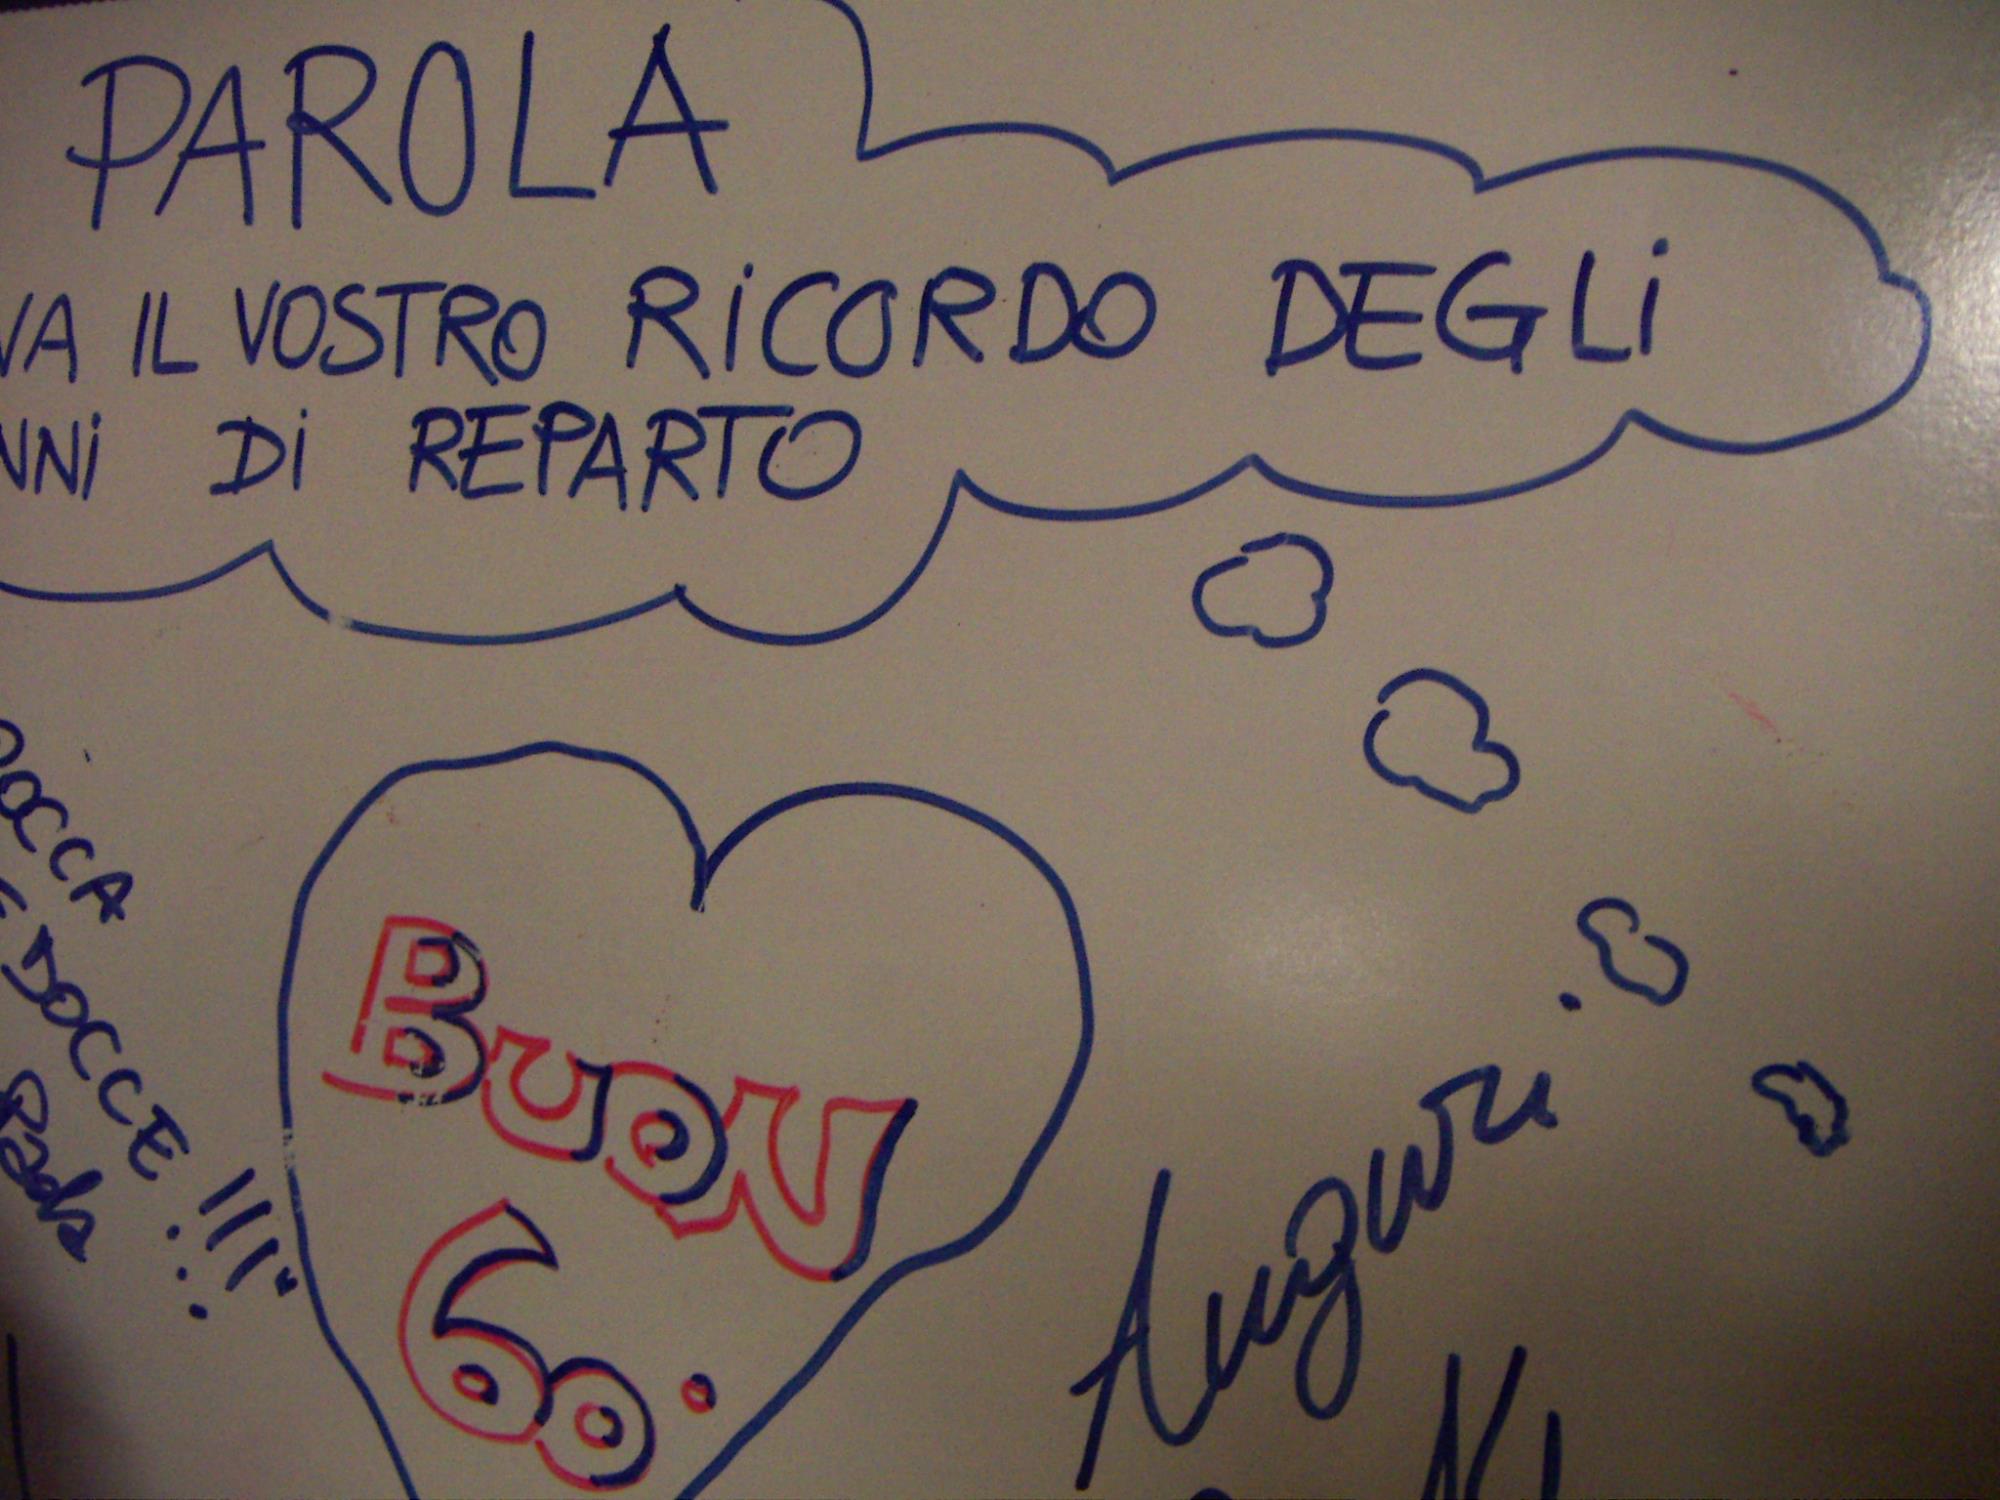 PAROLA
VA IL VOSTRO RiCORDO DEGLi
NNi Di REPARTO
OCCA
E DOCCE !!!
BUON
60°
Auguri